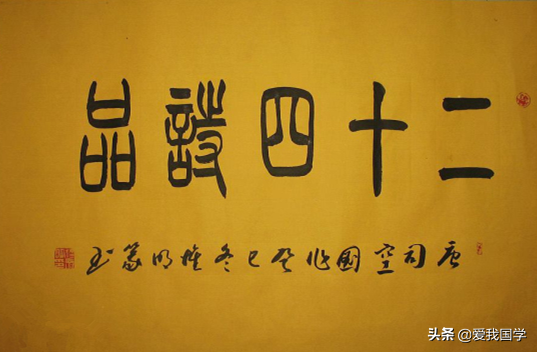 二十四詩品
唐司空圖作癸巳冬維明篆书
头条 @爱我国学